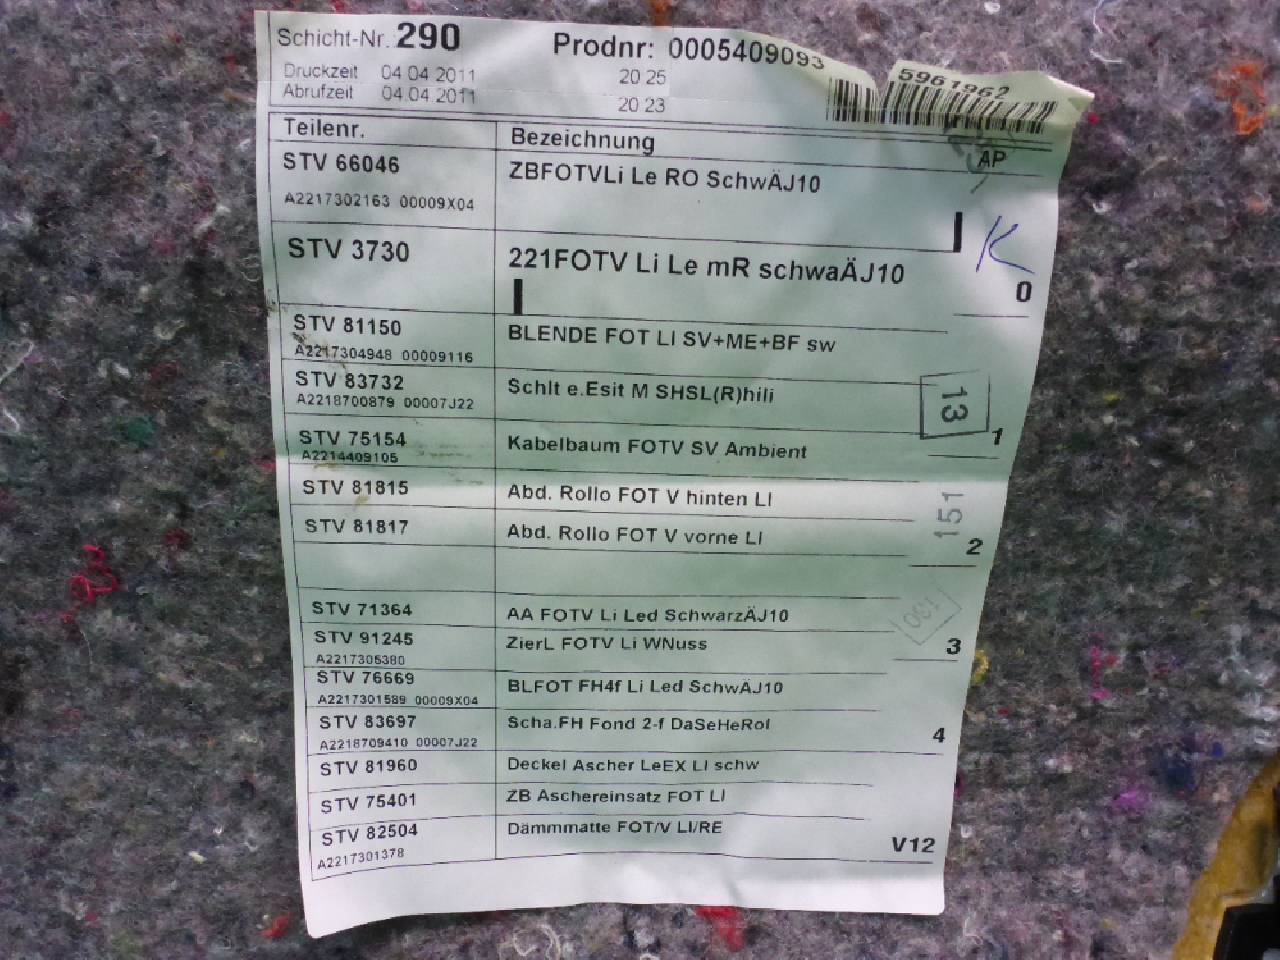 Schicht-Nr. 290 Prodnr: 0005409093
Druckzeit 04.04.2011 20 25
Abrufzeit 04.04.2011 20 23
5961962
Teilenr. Bezeichnung AP
STV 66046 ZBFOTVLi Le RO SchwÄJ10
A2217302163 00009X04
K
STV 3730 221FOTV Li Le mR schwaÄJ10
0
STV 81150 BLENDE FOT LI SV+ME+BF sw
A2217304948 00009116
STV 83732 Schlt e.Esit M SHSL(R)hili
A2218700879 00007J22
13
1
STV 75154 Kabelbaum FOTV SV Ambient
A2214409105
STV 81815 Abd. Rollo FOT V hinten LI
151
STV 81817 Abd. Rollo FOT V vorne LI
2
STV 71364 AA FOTV Li Led SchwarzÄJ10
130
STV 91245 ZierL FOTV Li WNuss
A2217305380
3
STV 76669 BLFOT FH4f Li Led SchwÄJ10
A2217301589 00009X04
STV 83697 Scha.FH Fond 2-f DaSeHeRol
A2218709410 00007J22
4
STV 81960 Deckel Ascher LeEX LI schw
STV 75401 ZB Aschereinsatz FOT LI
STV 82504 Dämmmatte FOT/V LI/RE
A2217301378
V12